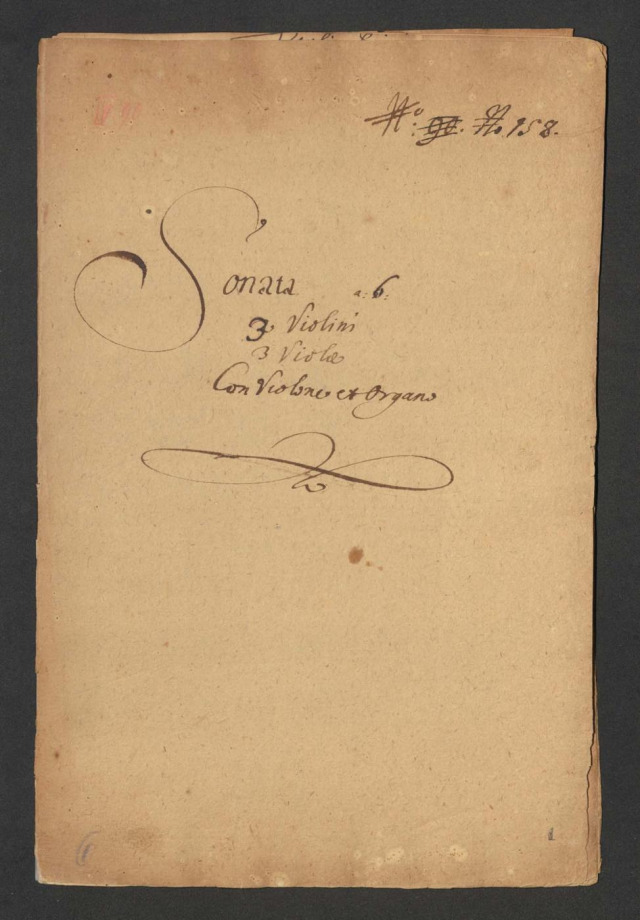 No: 90. No 158.
Sonata a: 6:
3 Violini
3 Violæ
Con Violone et Organo
6
1